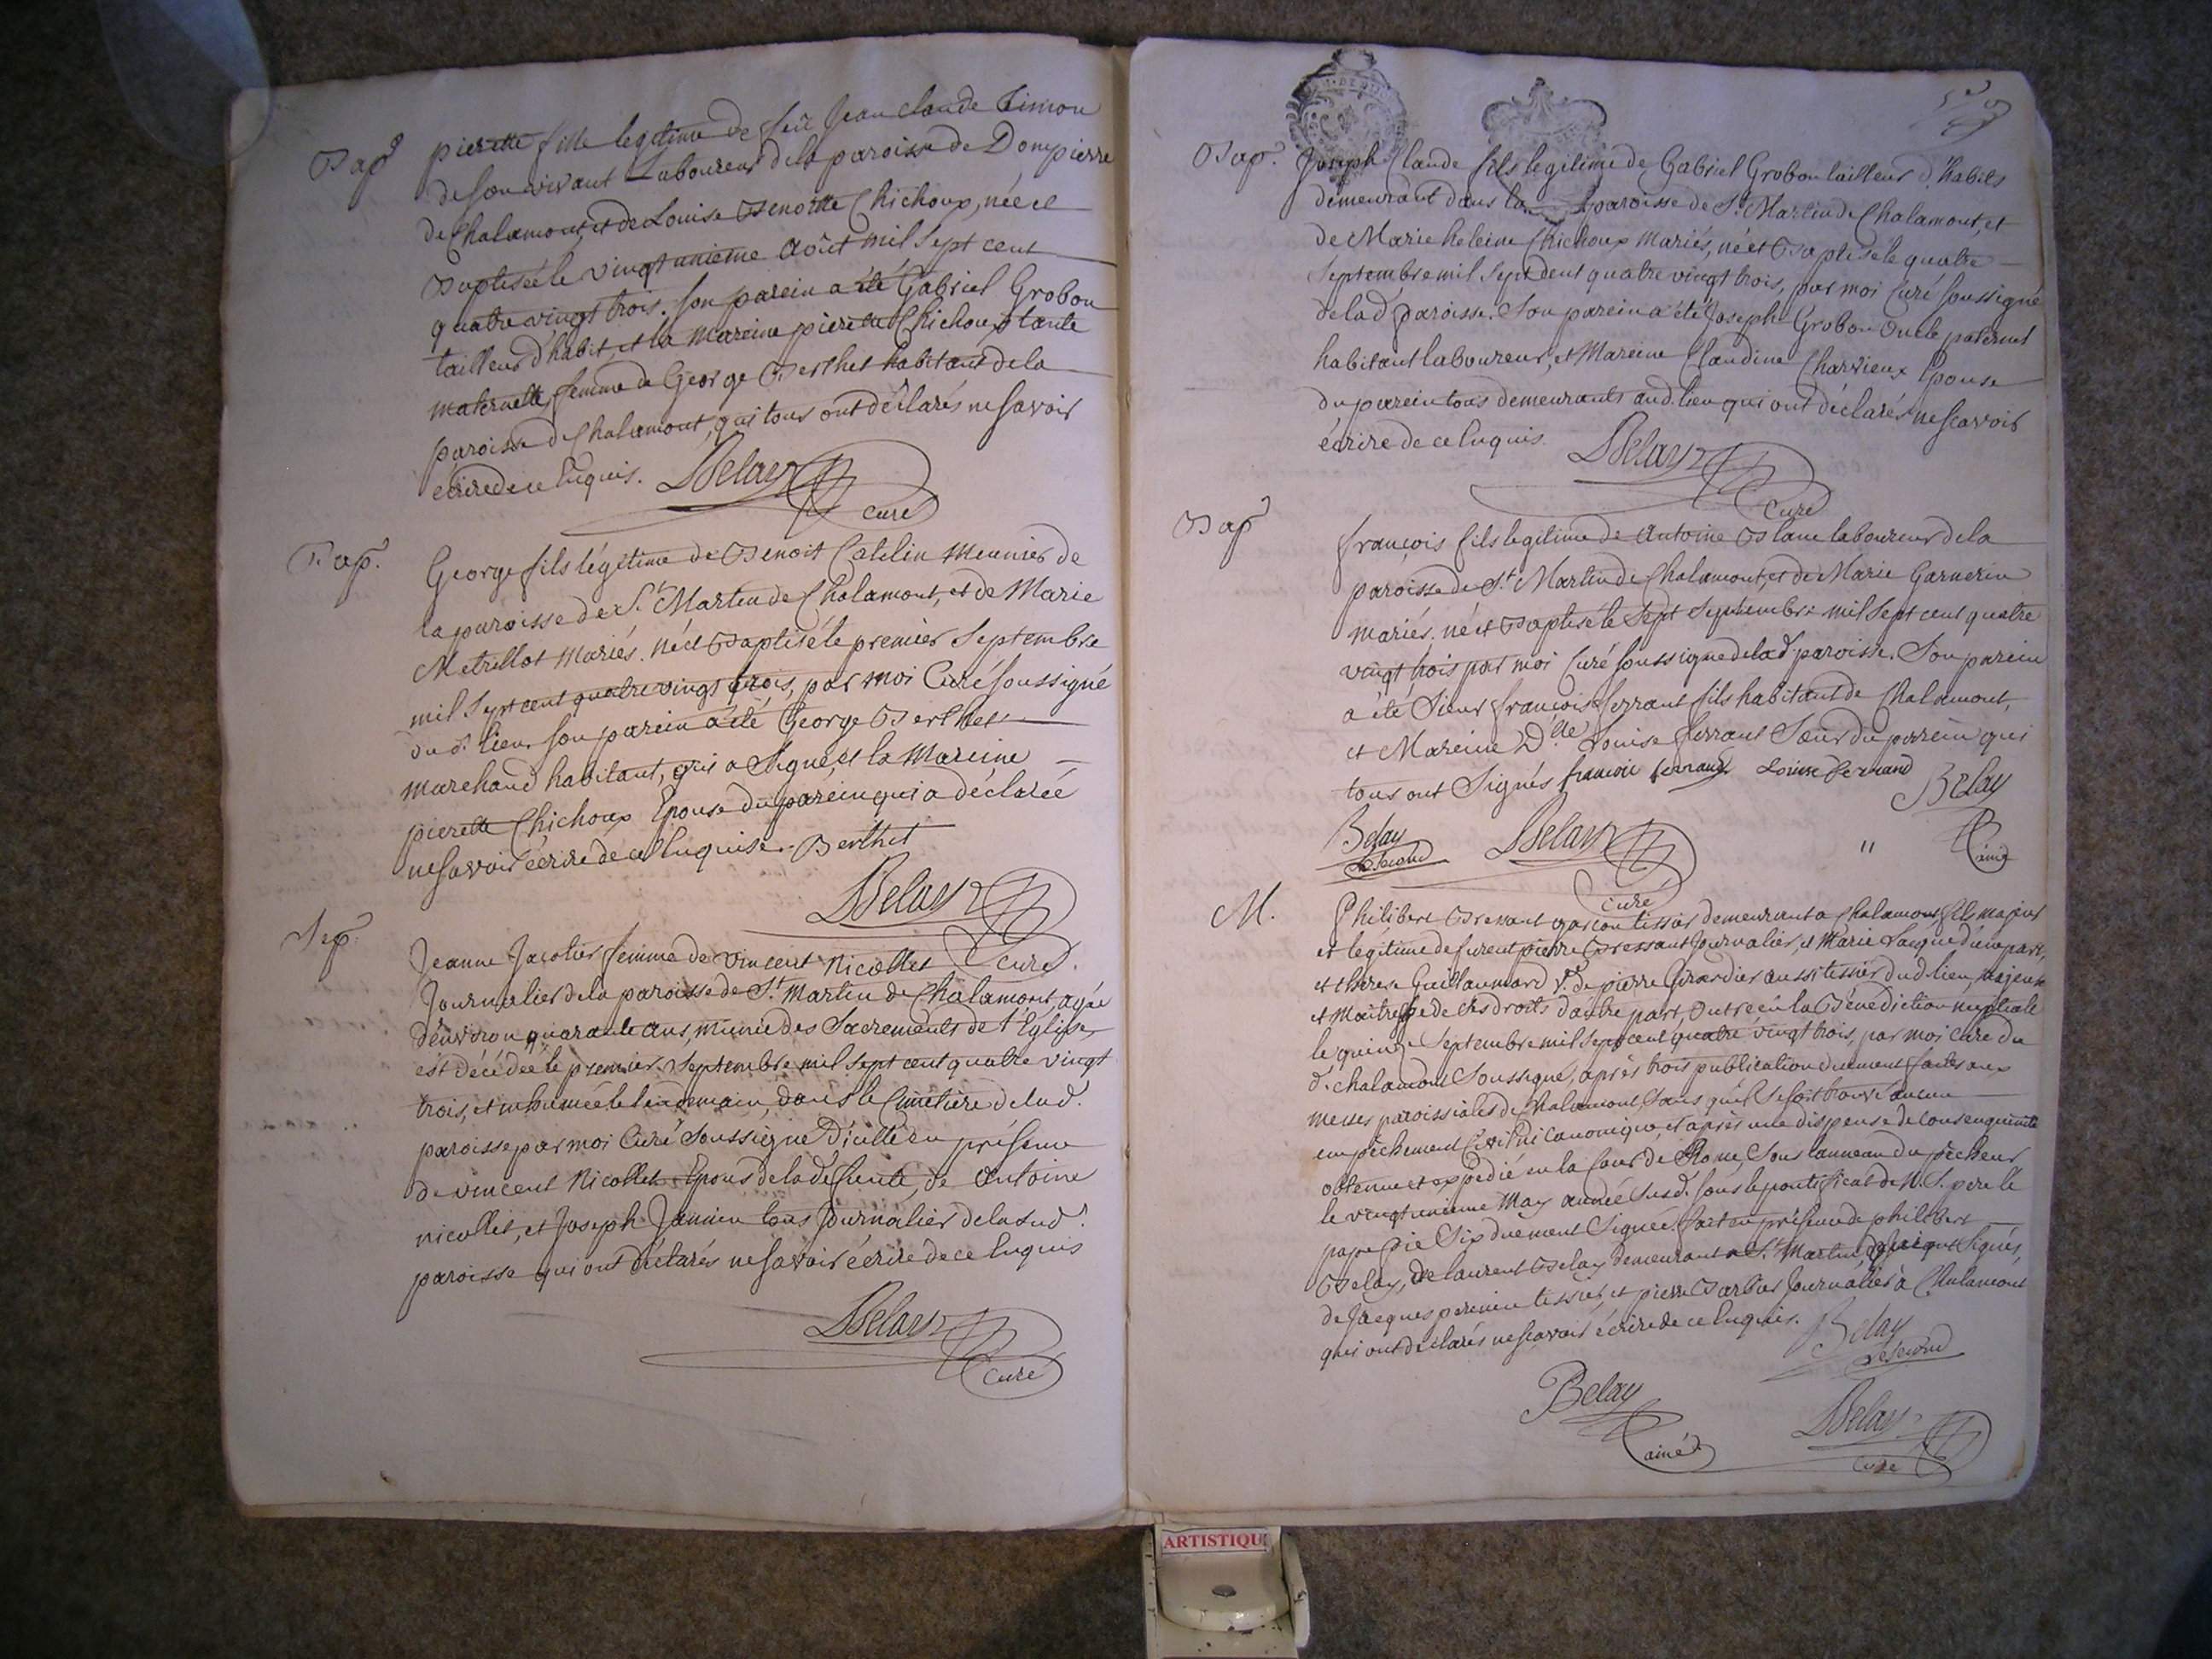 Bap.
pierette fille legitime de feu Jean Claude Timon
de son vivant Laboureur de la paroisse de Dompierre
de Chalamont, et de Louise Benoitte Chichoux, née et
Baptisée le vingt unieme Août mil Sept cent
quatre vingt trois. son parein a été Gabriel Grobon
tailleur d'habit, et la Mareine pierette Chichoux tante
maternelle, femme de George Berthet habitant de la
paroisse de Chalamont, qui tous ont déclarés ne savoir
écrire de ce Enquis. Belay
curé
Bap.
George fils légitime de Benoit Catelin Meunier de
la paroisse de St. Martin de Chalamont, et de Marie
Metrillot Mariés. né et Baptisé le premier Septembre
mil Sept cent quatre vingt trois, par moi Curé soussigné
du d. lieu. son parein a été George Berthet
marchand habitant, qui a Signé, et la Mareine
pierette Chichoux Epouse du parein qui a déclarée
ne savoir écrire de ce Enquise. Berthet
Belay
curé
Sep.
Jeanne Jacolier femme de Vincent Nicollet
Journalier de la paroisse de St. Martin de Chalamont, agée
d'environ quarante ans, munie des Sacrements de l'Eglise,
est décédée le premier Septembre mil Sept cent quatre vingt
trois, et inhumée le lendemain, dans le Cimetière de lad.
paroisse par moi Curé Soussigné D'icelle en présence
de vincent Nicollet Epoux de la défunte, de Antoine
nicollet, et Joseph Janin tous Journalier de la sud.
paroisse qui ont déclarés ne savoir écrire de ce Enquis
Belay
curé
Bap.
Joseph Claude fils legitime de Gabriel Grobon tailleur d'habits
demeurant dans la paroisse de St. Martin de Chalamont, et
de Marie heleine Chichoux Mariés, né et Baptisé le quatre
Septembre mil Sept Cent quatre vingt trois, par moi Curé soussigné
de lad. paroisse. Son parein a été Joseph Grobon Oncle paternel
habitant laboureur, et Mareine Claudine Charvieux Epouse
du parein tous demeurants aud. lieu qui ont déclarés ne scavoir
écrire de ce Enquis. Belay
Curé
Bap
françois fils legitime de Antoine Blanc laboureur de la
paroisse de St. Martin de Chalamont, et de Marie Garnerin
mariés. né et Baptisé le Sept Septembre mil Sept cent quatre
vingt trois par moi Curé Soussigné de lad. paroisse. Son parein
a été Sieur françois ferrant fils habitant de Chalamont,
et Mareine D.lle Louise ferrant Soeur du parrein qui
tous ont Signés françois ferrand Louise Ferrand Belay
ainé
Belay Belay
le second
curé
M.
Philibert Bressant garçon tissier demeurant a Chalamont fils majeur
et légitime de furent pierre Bressant Journalier, et Marie Lacque d'une part,
et therese Guillaumard V. de pierre Girardier aussi tissier dud. lieu, majeure
et Maitresse de ses droits d'autre part, ont reçû la Bénédiction nuptiale
le quinze Septembre mil Sept cent quatre vingt trois, par moi Curé du
d. chalamont Soussigné, après trois publication duement faites aux
messes paroissiales de Chalamont, Sans qu'il se soit trouvé aucun
empêchement Civil ni Canonique, et après une dispense de consenguinité
obtenue et expédié en la Cour de Rome, Sous l'anneau du pêcheur
le vingt unieme May année susd. sous le pontificat de N. S. pere le
pape Pie Six duement Signée. fait en présence de philibert
Belay, De laurent Belay demeurant a St. Martin, qui ont Signés,
de Jacques perinin tessier, et pierre Barbier Journalier a Chalamont
qui ont déclarés ne scavoir écrire de ce Enquis. Belay
le second
Belay
ainé
Belay
curé
ARTISTIQU